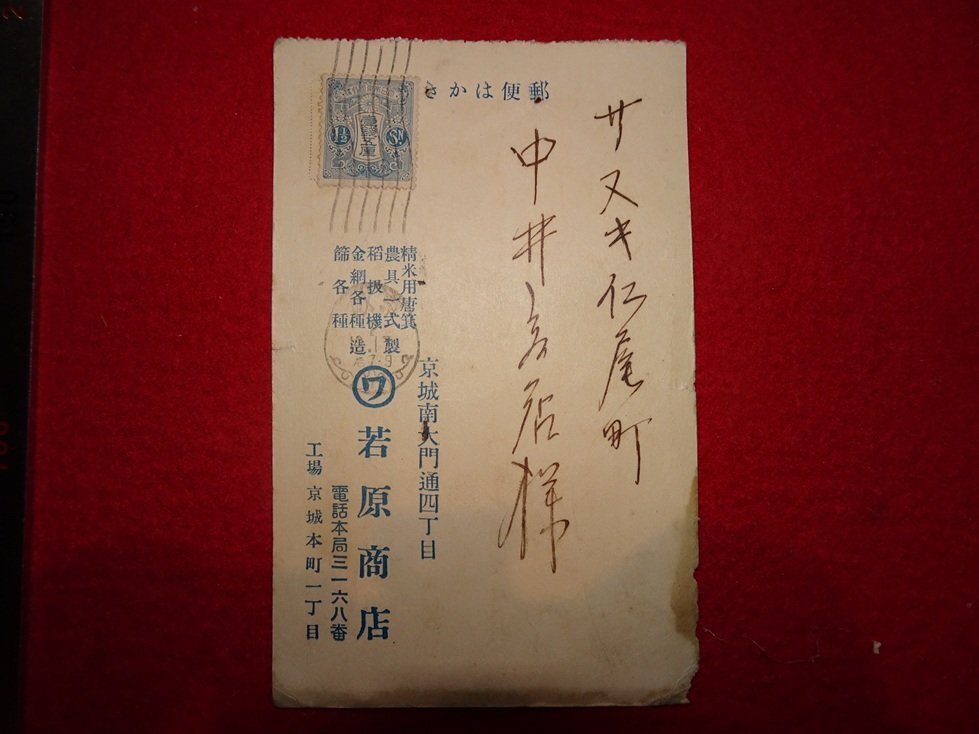 郵便はかき
サヌキ仁尾町
中井商店様
精米用唐箕
農具一式製
稲扱機
金網各種造
篩各種
京城南大門通四丁目
ワ 若原商店
電話本局三一六八番
工場 京城本町一丁目
1½ Sn